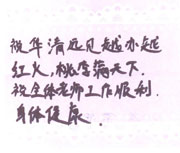 祝华清远见越办越
红火，桃李满天下.
祝全体老师工作顺利.
身体健康.